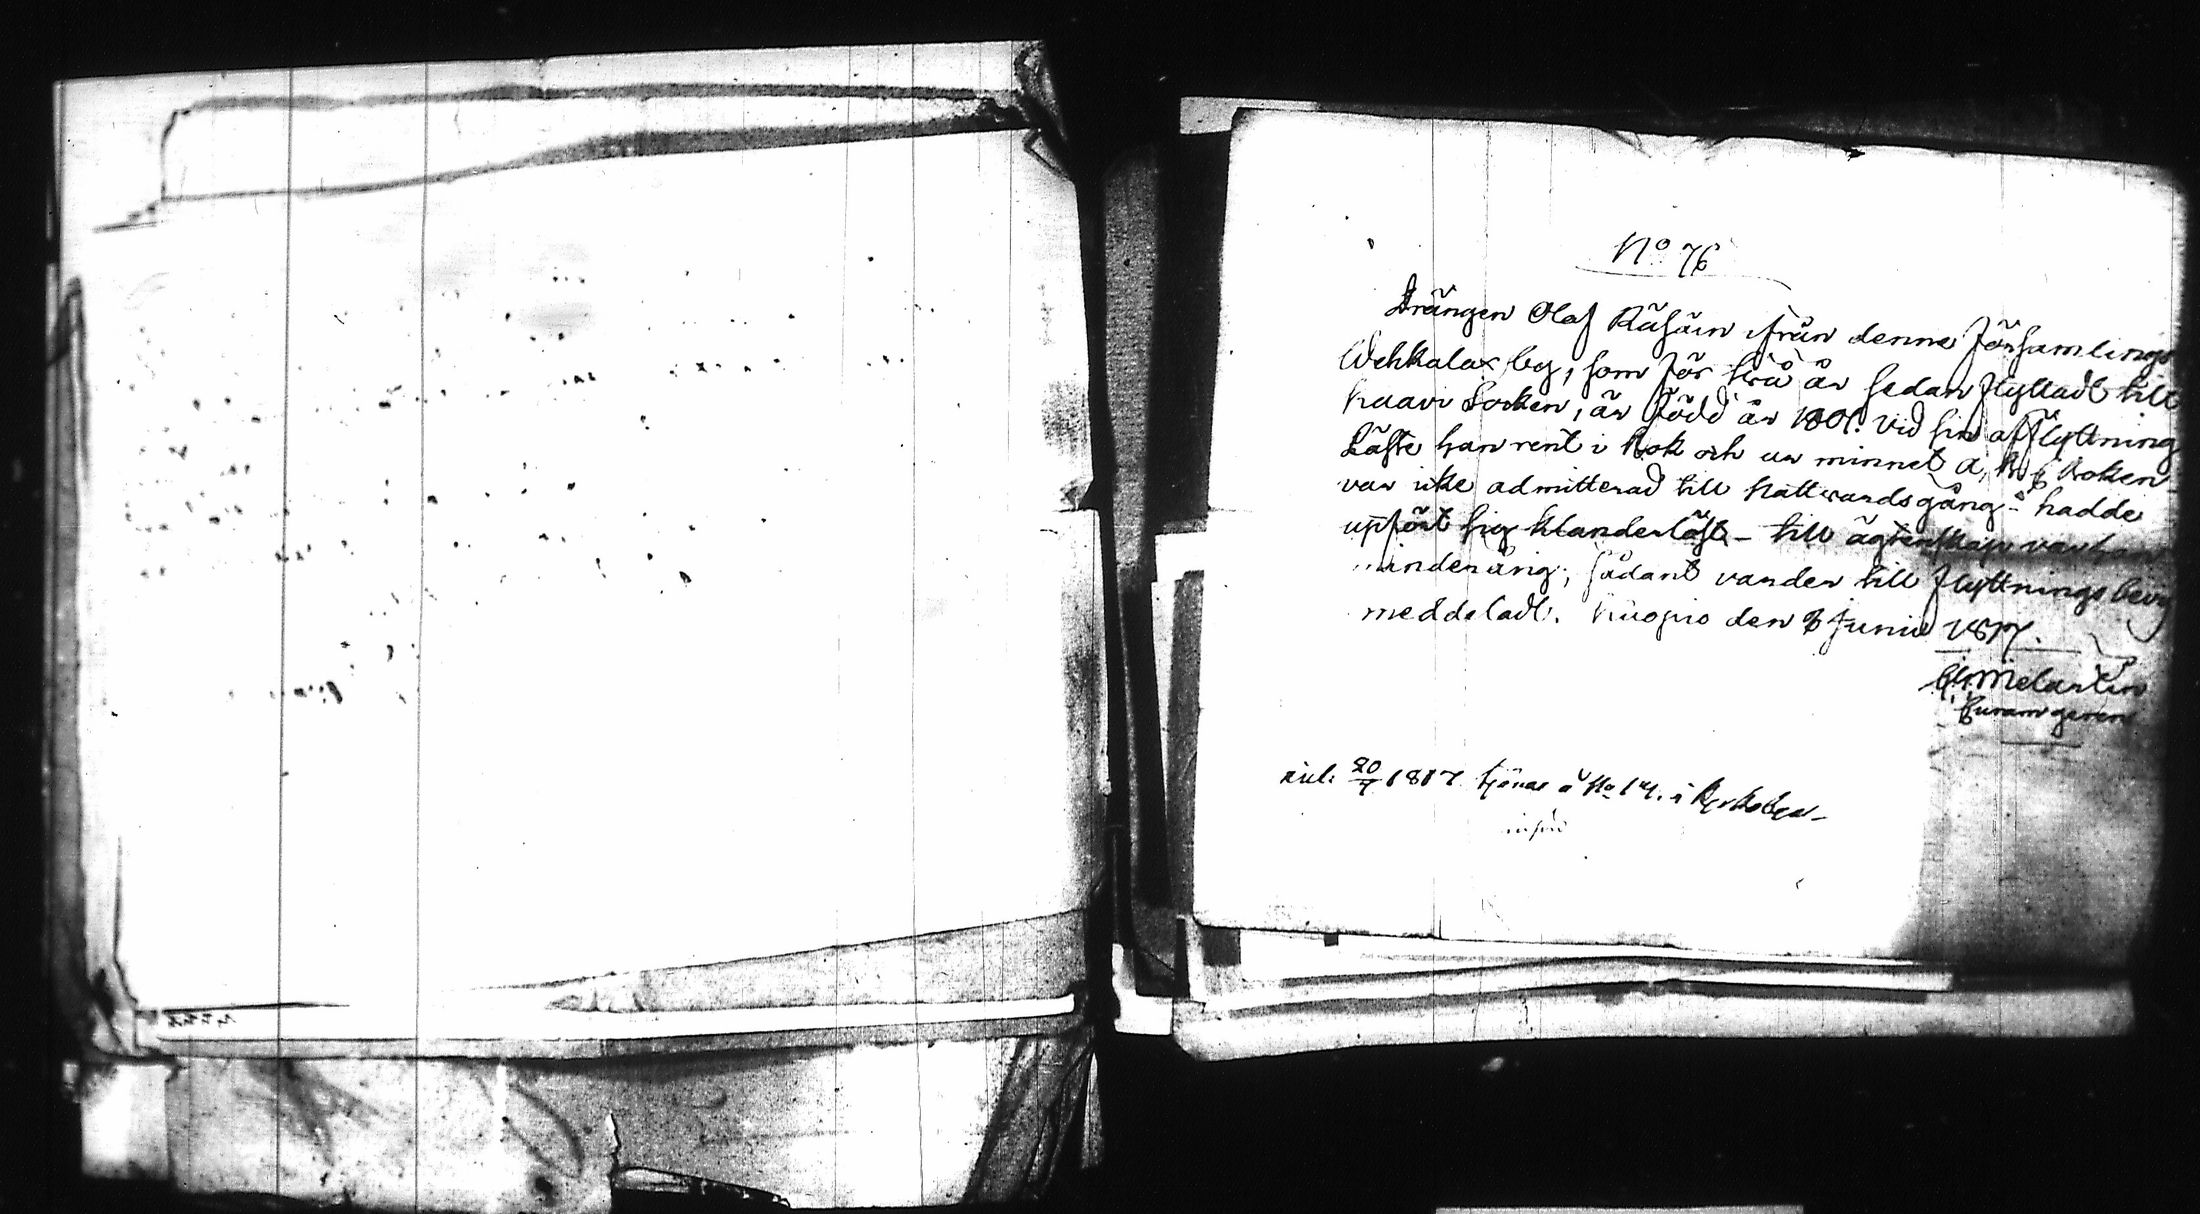 No 76
Drängen Olof Räsäin ifrån denne Församlings
Wehkalax by, som för två år sedan flyttadt till
Kaavi Socken, är född år 1801. Vid sin afflyttning
Läste han rent i Bok och ur minnet A, B, C Boken
var icke admitterad till Nattvardsgång - hadde
uppfört sig klanderlöst - till ägtenskap var han
minderårig; sådant varder till flyttnings bevis
meddeladt. Kuopio den 8 Junii 1817.
Melartin
aiel. 20/7 1817 tjenar å No 14. i Kyrkobyn